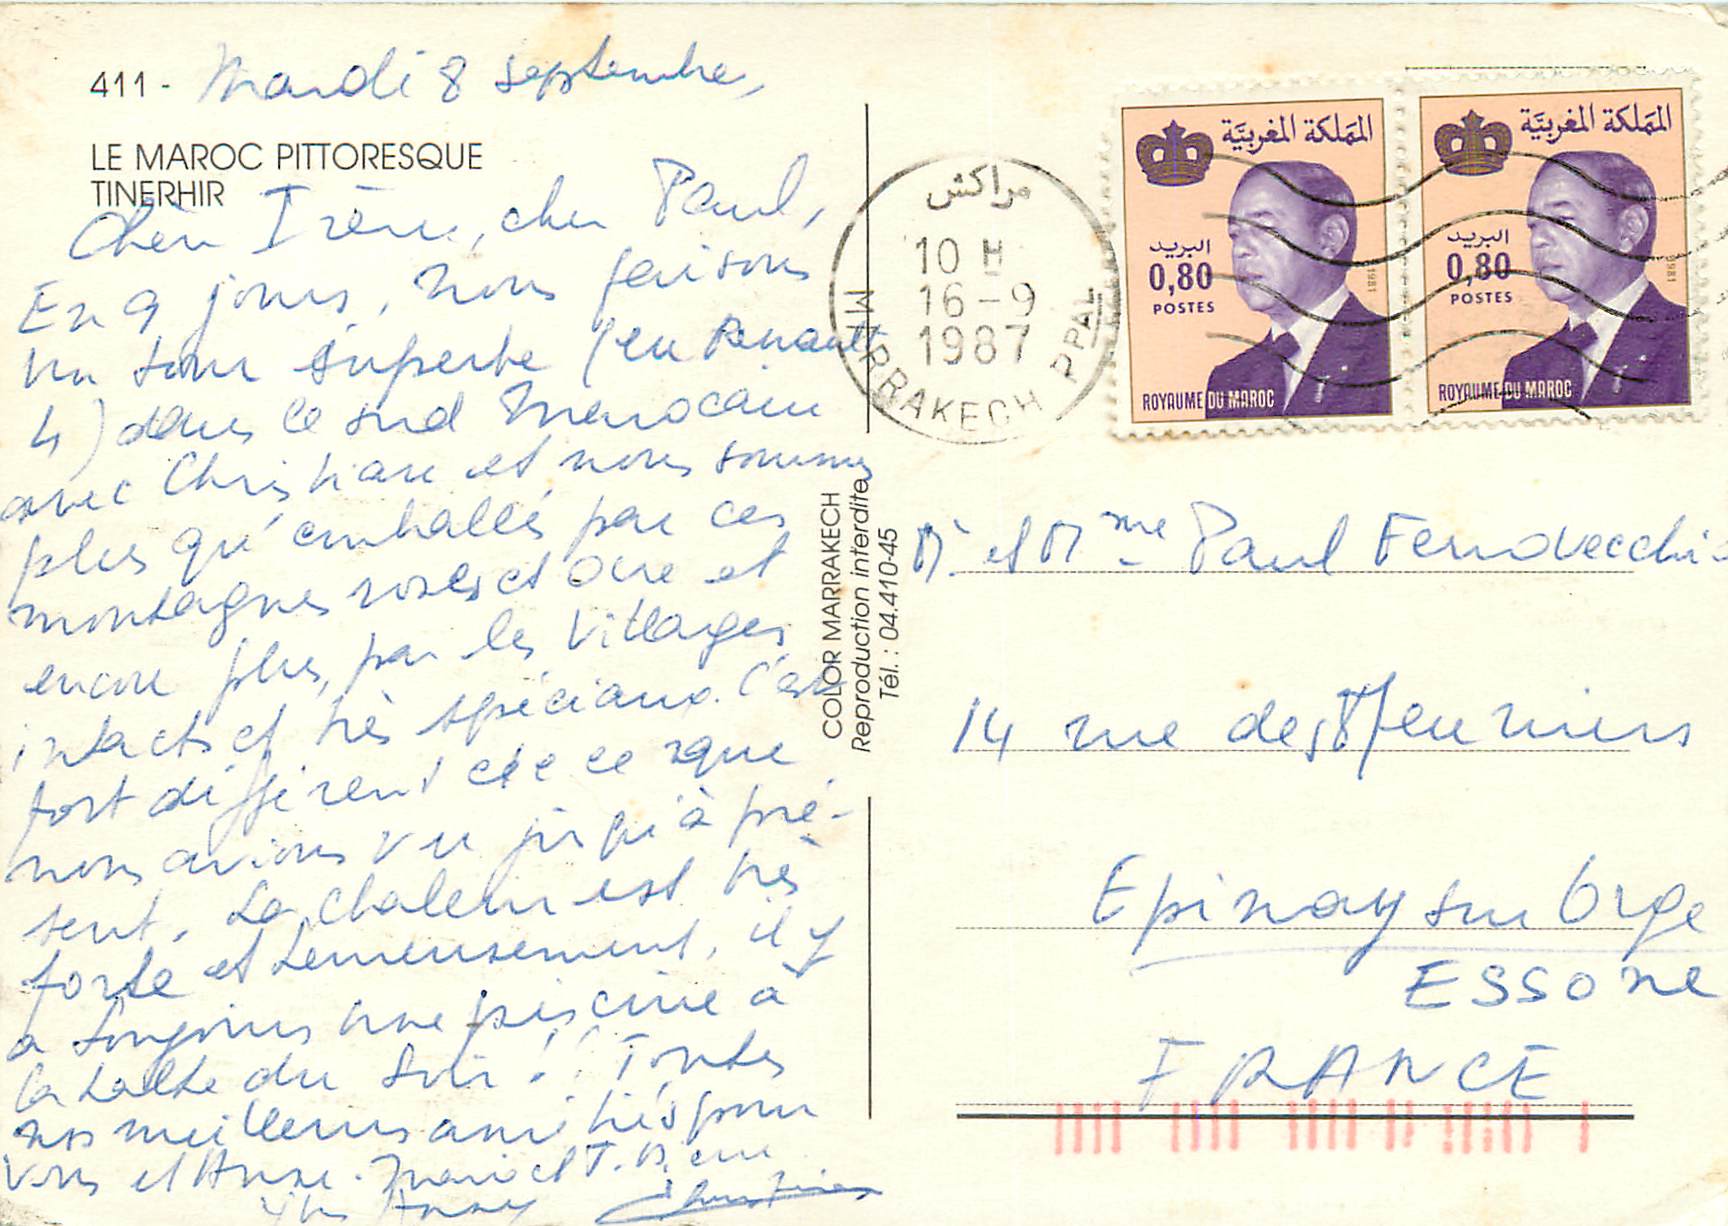 411 - Mardi 8 septembre,
LE MAROC PITTORESQUE
TINERHIR
Chère Irène, cher Paul,
En 9 jours, nous faisons
un tour superbe (en Renault
4) dans le sud marocain
avec Christiane et nous sommes
plus qu'emballés par ces
montagnes roses et ocre et
encore plus, par les villages
intacts et très spéciaux. C'est
fort différent de ce que
nous avions vu jusqu'à pré-
sent. La chaleur est très
forte et heureusement, il y
a toujours une piscine à
la halte du soir! Toutes
nos meilleures amitiés pour
vous et Anne.
مراكش
10 H
16-9
1987
MARRAKECH PPAL
المملكة المغربية
البريد
0,80
POSTES
1981
ROYAUME DU MAROC
المملكة المغربية
البريد
0,80
POSTES
1981
ROYAUME DU MAROC
COLOR MARRAKECH
Reproduction interdite
Tél. : 04.410-45
Mr et Mme Paul
14 rue des
Epinay sur Orge
ESSONE
FRANCE